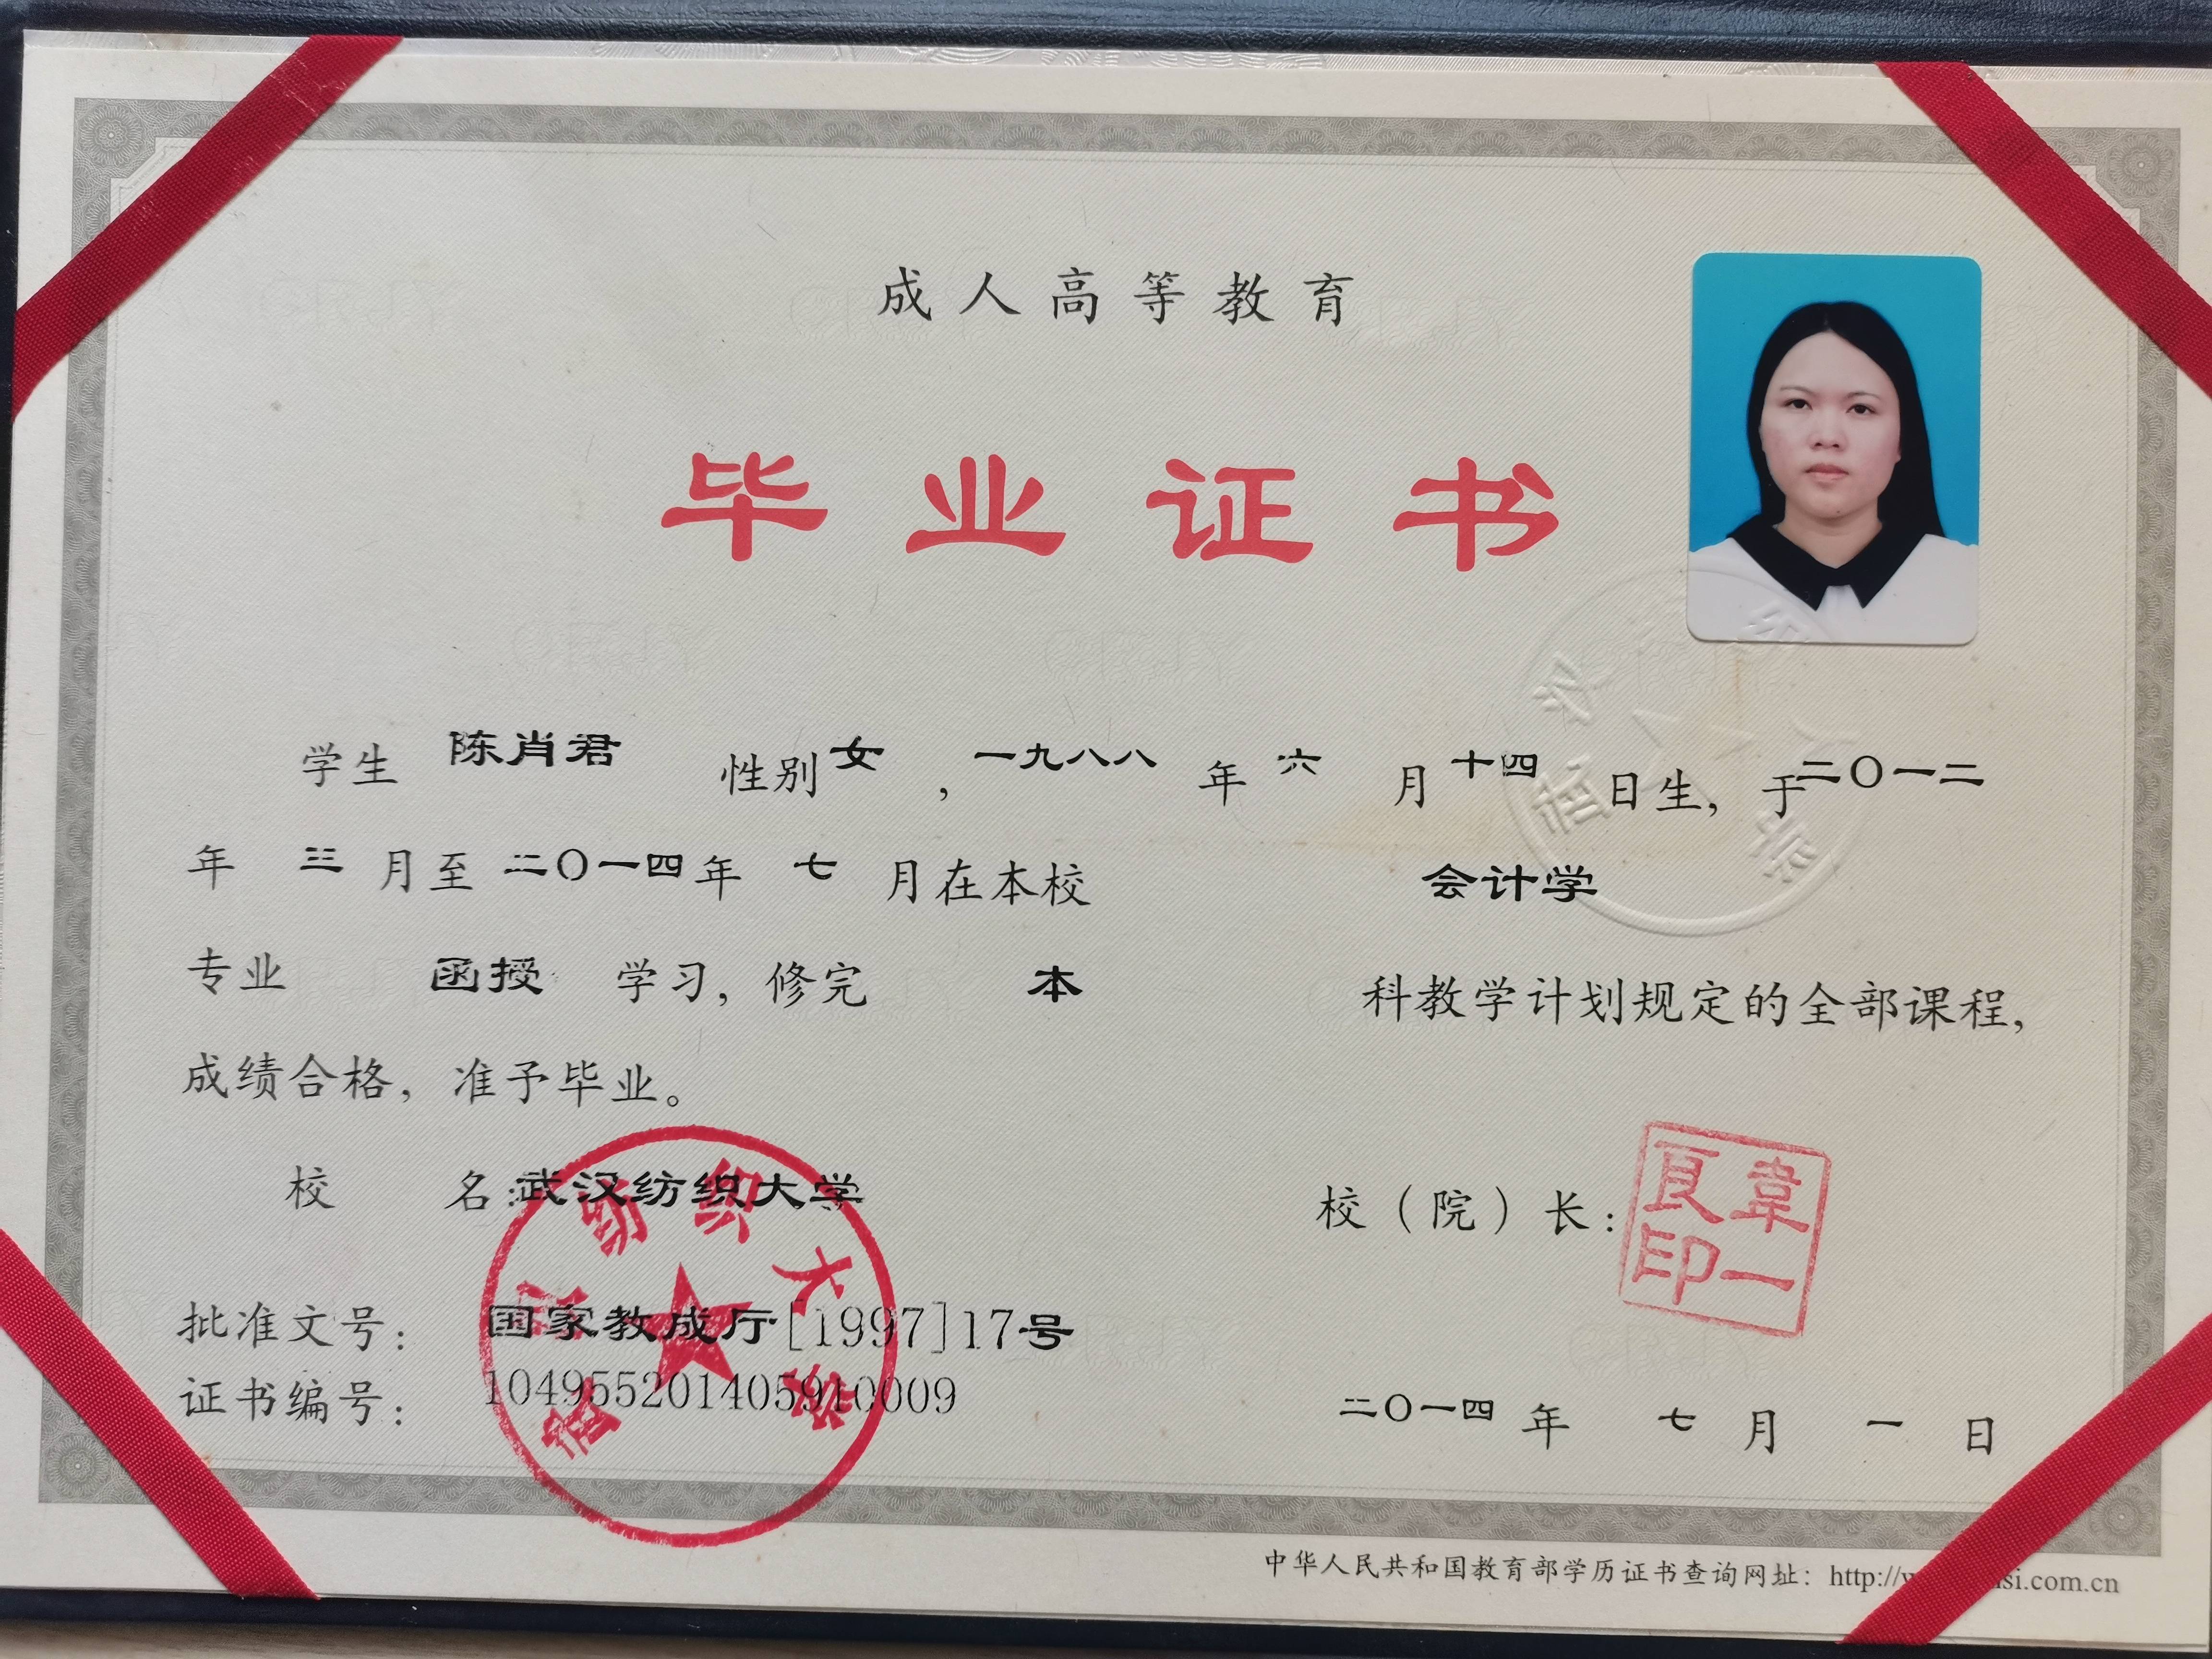 成人高等教育
毕业证书
学生 陈肖君 性别 女 ，一九八八 年 六 月 十四 日生，于 二〇一二
年 三 月至 二〇一四 年 七 月在本校 会计学
专业 函授 学习，修完 本 科教学计划规定的全部课程，
成绩合格，准予毕业。
校 名：武汉纺织大学
校（院）长：
韦一良印
批准文号： 国家教成厅[1997]17号
证书编号： 104955201405910009
二〇一四 年 七 月 一 日
中华人民共和国教育部学历证书查询网址：http://w si.com.cn